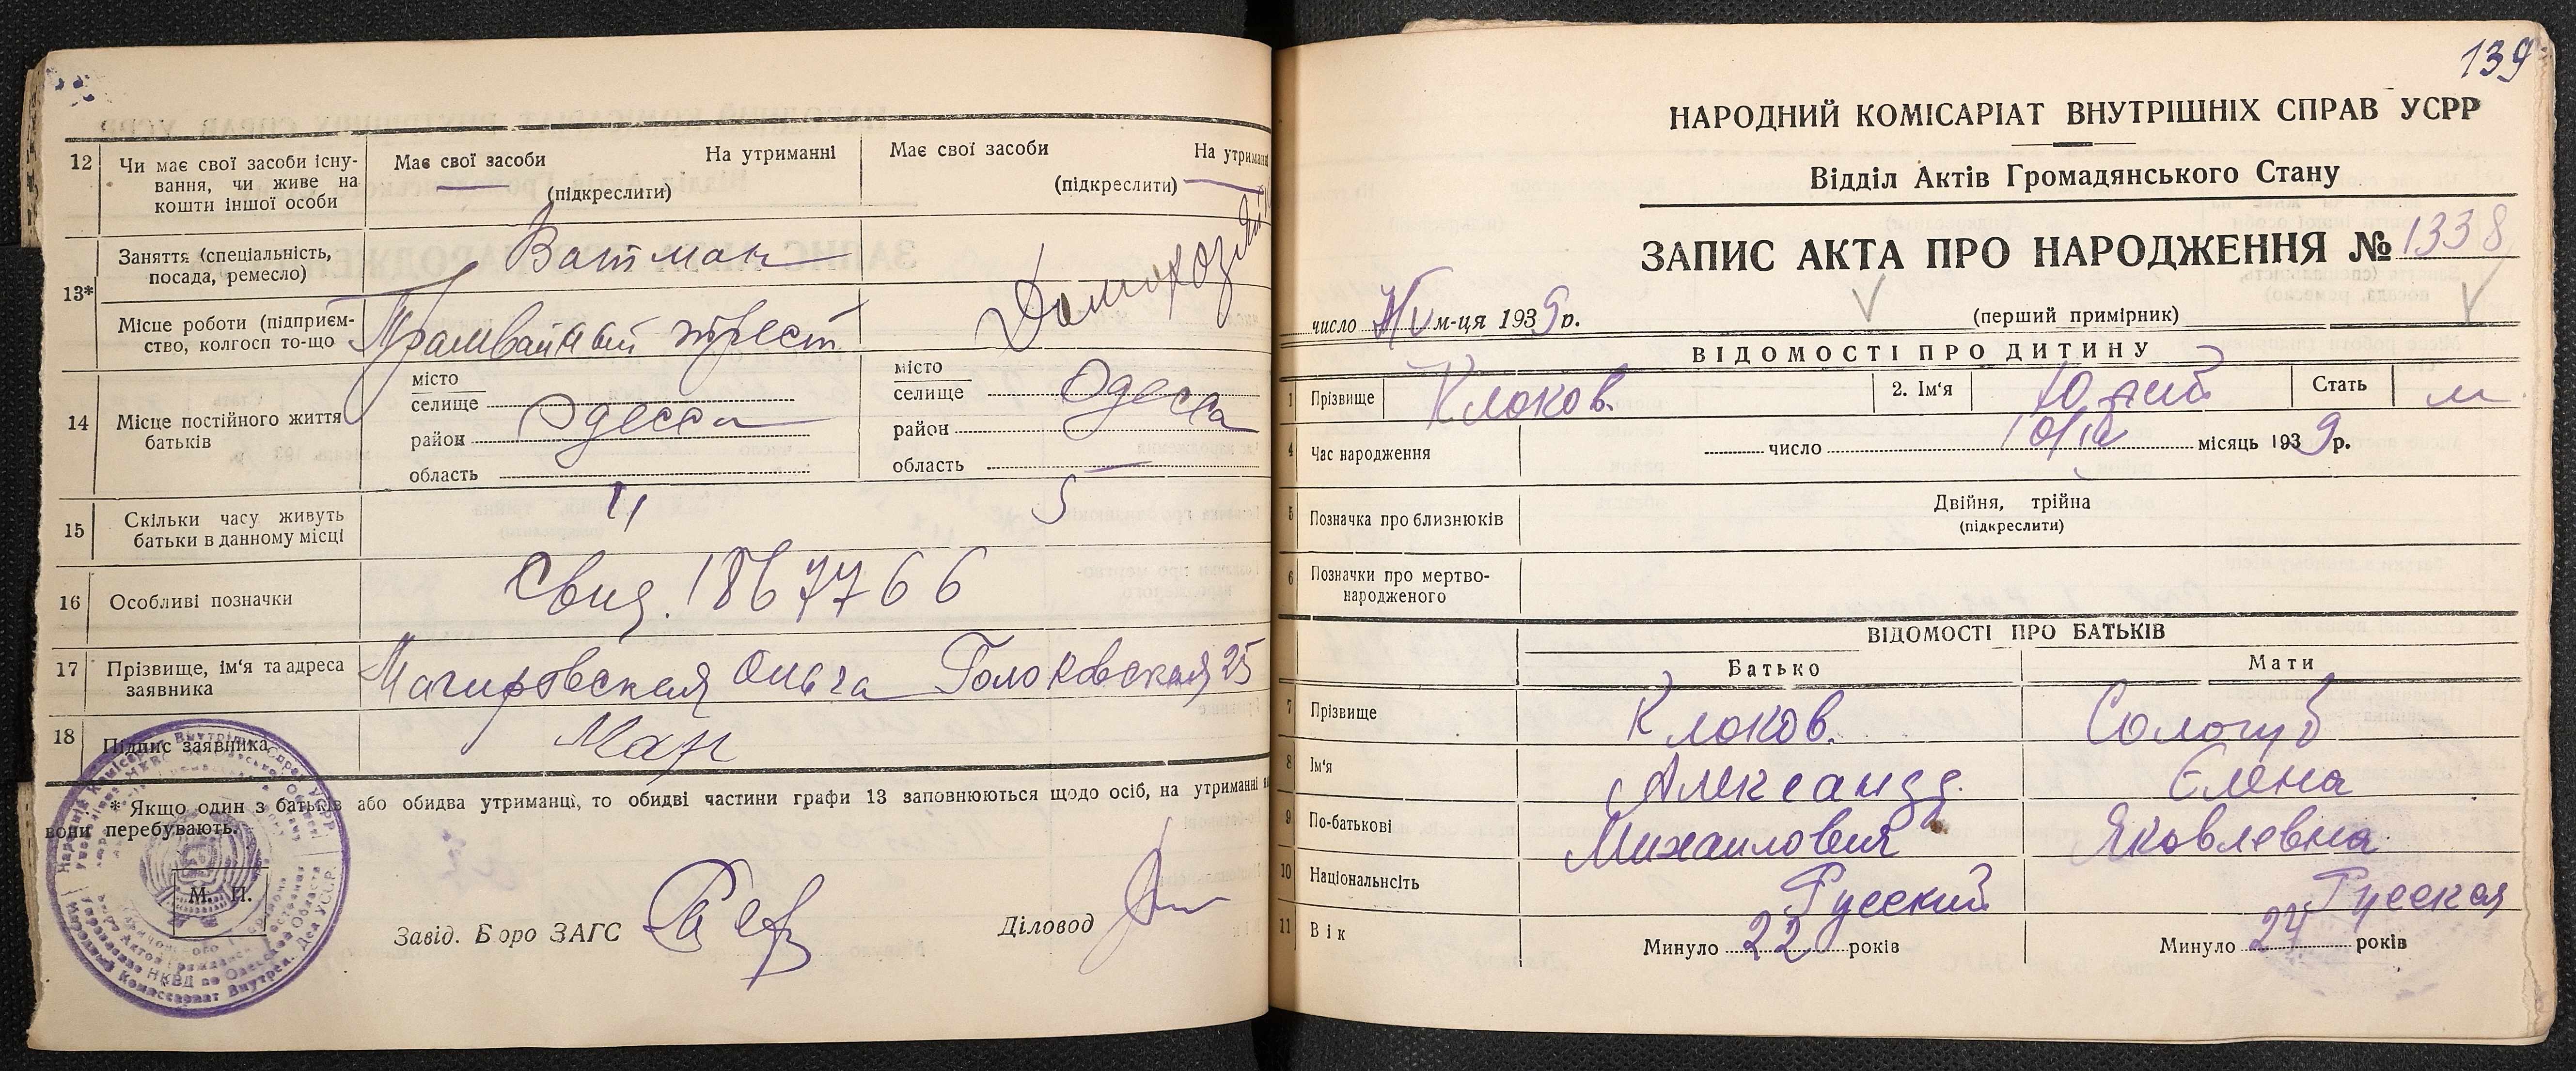 12
Чи має свої засоби існу-
вання, чи живе на
кошти іншої особи
Має свої засоби
На утриманні
(підкреслити)
Має свої засоби
На утриманні
(підкреслити)
13*
Заняття (спеціальність,
посада, ремесло)
Ватман
Домохозяйка
Місце роботи (підприєм-
ство, колгосп то-що
Трамвайный трест
14
Місце постійного життя
батьків
місто
селище
район
область
Одесса
місто
селище
район
область
Одесса
15
Скільки часу живуть
батьки в данному місці
5
16
Особливі позначки
Свид. 1867766
17
Прізвище, ім'я та адреса
заявника
Ольга
25
18
Підпис заявника
* Якщо один з батьків або обидва утриманці, то обидві частини графи 13 заповнюються щодо осіб, на утриманні
вони перебувають.
М. П.
Завід. Бюро ЗАГС
Діловод
139
НАРОДНИЙ КОМІСАРІАТ ВНУТРІШНІХ СПРАВ УСРР
Відділ Актів Громадянського Стану
ЗАПИС АКТА ПРО НАРОДЖЕННЯ № 1338
число
м-ця 1939 р.
(перший примірник)
ВІДОМОСТІ ПРО ДИТИНУ
1
Прізвище
Клоков
2. Ім'я
Юрий
Стать
м
4
Час народження
число
місяць 1939 р.
5
Позначка про близнюків
Двійня, трійна
(підкреслити)
6
Позначки про мертво-
народженого
ВІДОМОСТІ ПРО БАТЬКІВ
Батько
Мати
7
Прізвище
Клоков.
Сологуб
8
Ім'я
Александр.
Елена
9
По-батькові
Михаилович
Яковлевна
10
Національнсіть
Русский
Русская
11
Вік
Минуло 22 років
Минуло 24 років